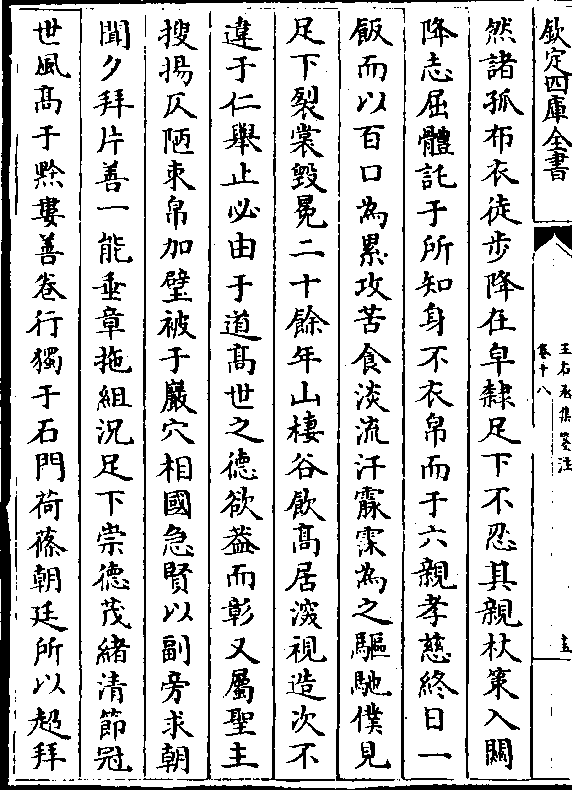 欽定四庫全書
王右丞集箋注
卷十八
然諸孤布衣徒步降在皁隸足下不忍其親杖策入關
降志屈體託于所知身不衣帛而于六親孝慈終日一
飯而以百口為累攻苦食淡流汗霡霂為之驅馳僕見
足下裂裳毀冕二十餘年山棲谷飲高居深視造次不
違于仁舉止必由于道高世之德欲蓋而彰又屬聖主
搜揚仄陋束帛加璧被于巖穴相國急賢以副旁求朝
聞夕拜片善一能垂章拖組況足下崇德茂緒清節冠
世風高于黔婁善卷行獨于石門荷蓧朝廷所以超拜